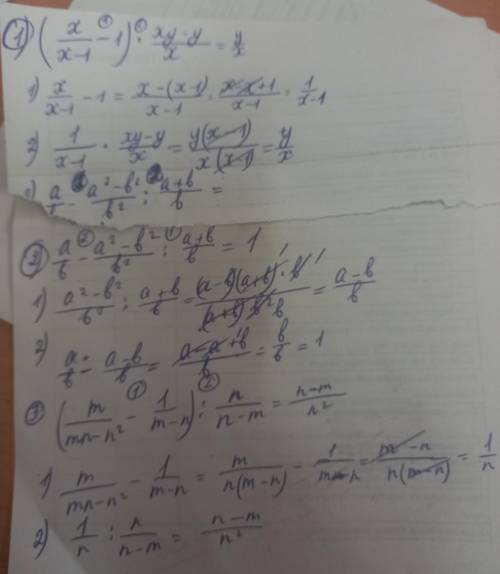 ① (x/(x-1) - 1) · (xy-y)/x = y/x
1) x/(x-1) - 1 = (x-(x-1))/(x-1) = (x-x+1)/(x-1) = 1/(x-1)
2) 1/(x-1) · (xy-y)/x = y(x-1)/(x(x-1)) = y/x
a/b - (a²-b²)/b² : (a+b)/b =
② a/b - (a²-b²)/b² : (a+b)/b = 1
1) (a²-b²)/b² : (a+b)/b = ((a-b)(a+b)·b)/((a+b)b²) = (a-b)/b
2) a/b - (a-b)/b = (a-a+b)/b = b/b = 1
③ (m/(mn-n²) - 1/(m-n)) : n/(n-m) = (n-m)/n²
1) m/(mn-n²) - 1/(m-n) = m/(n(m-n)) - 1/(m-n) = (m-n)/(n(m-n)) = 1/n
2) 1/n : n/(n-m) = (n-m)/n²